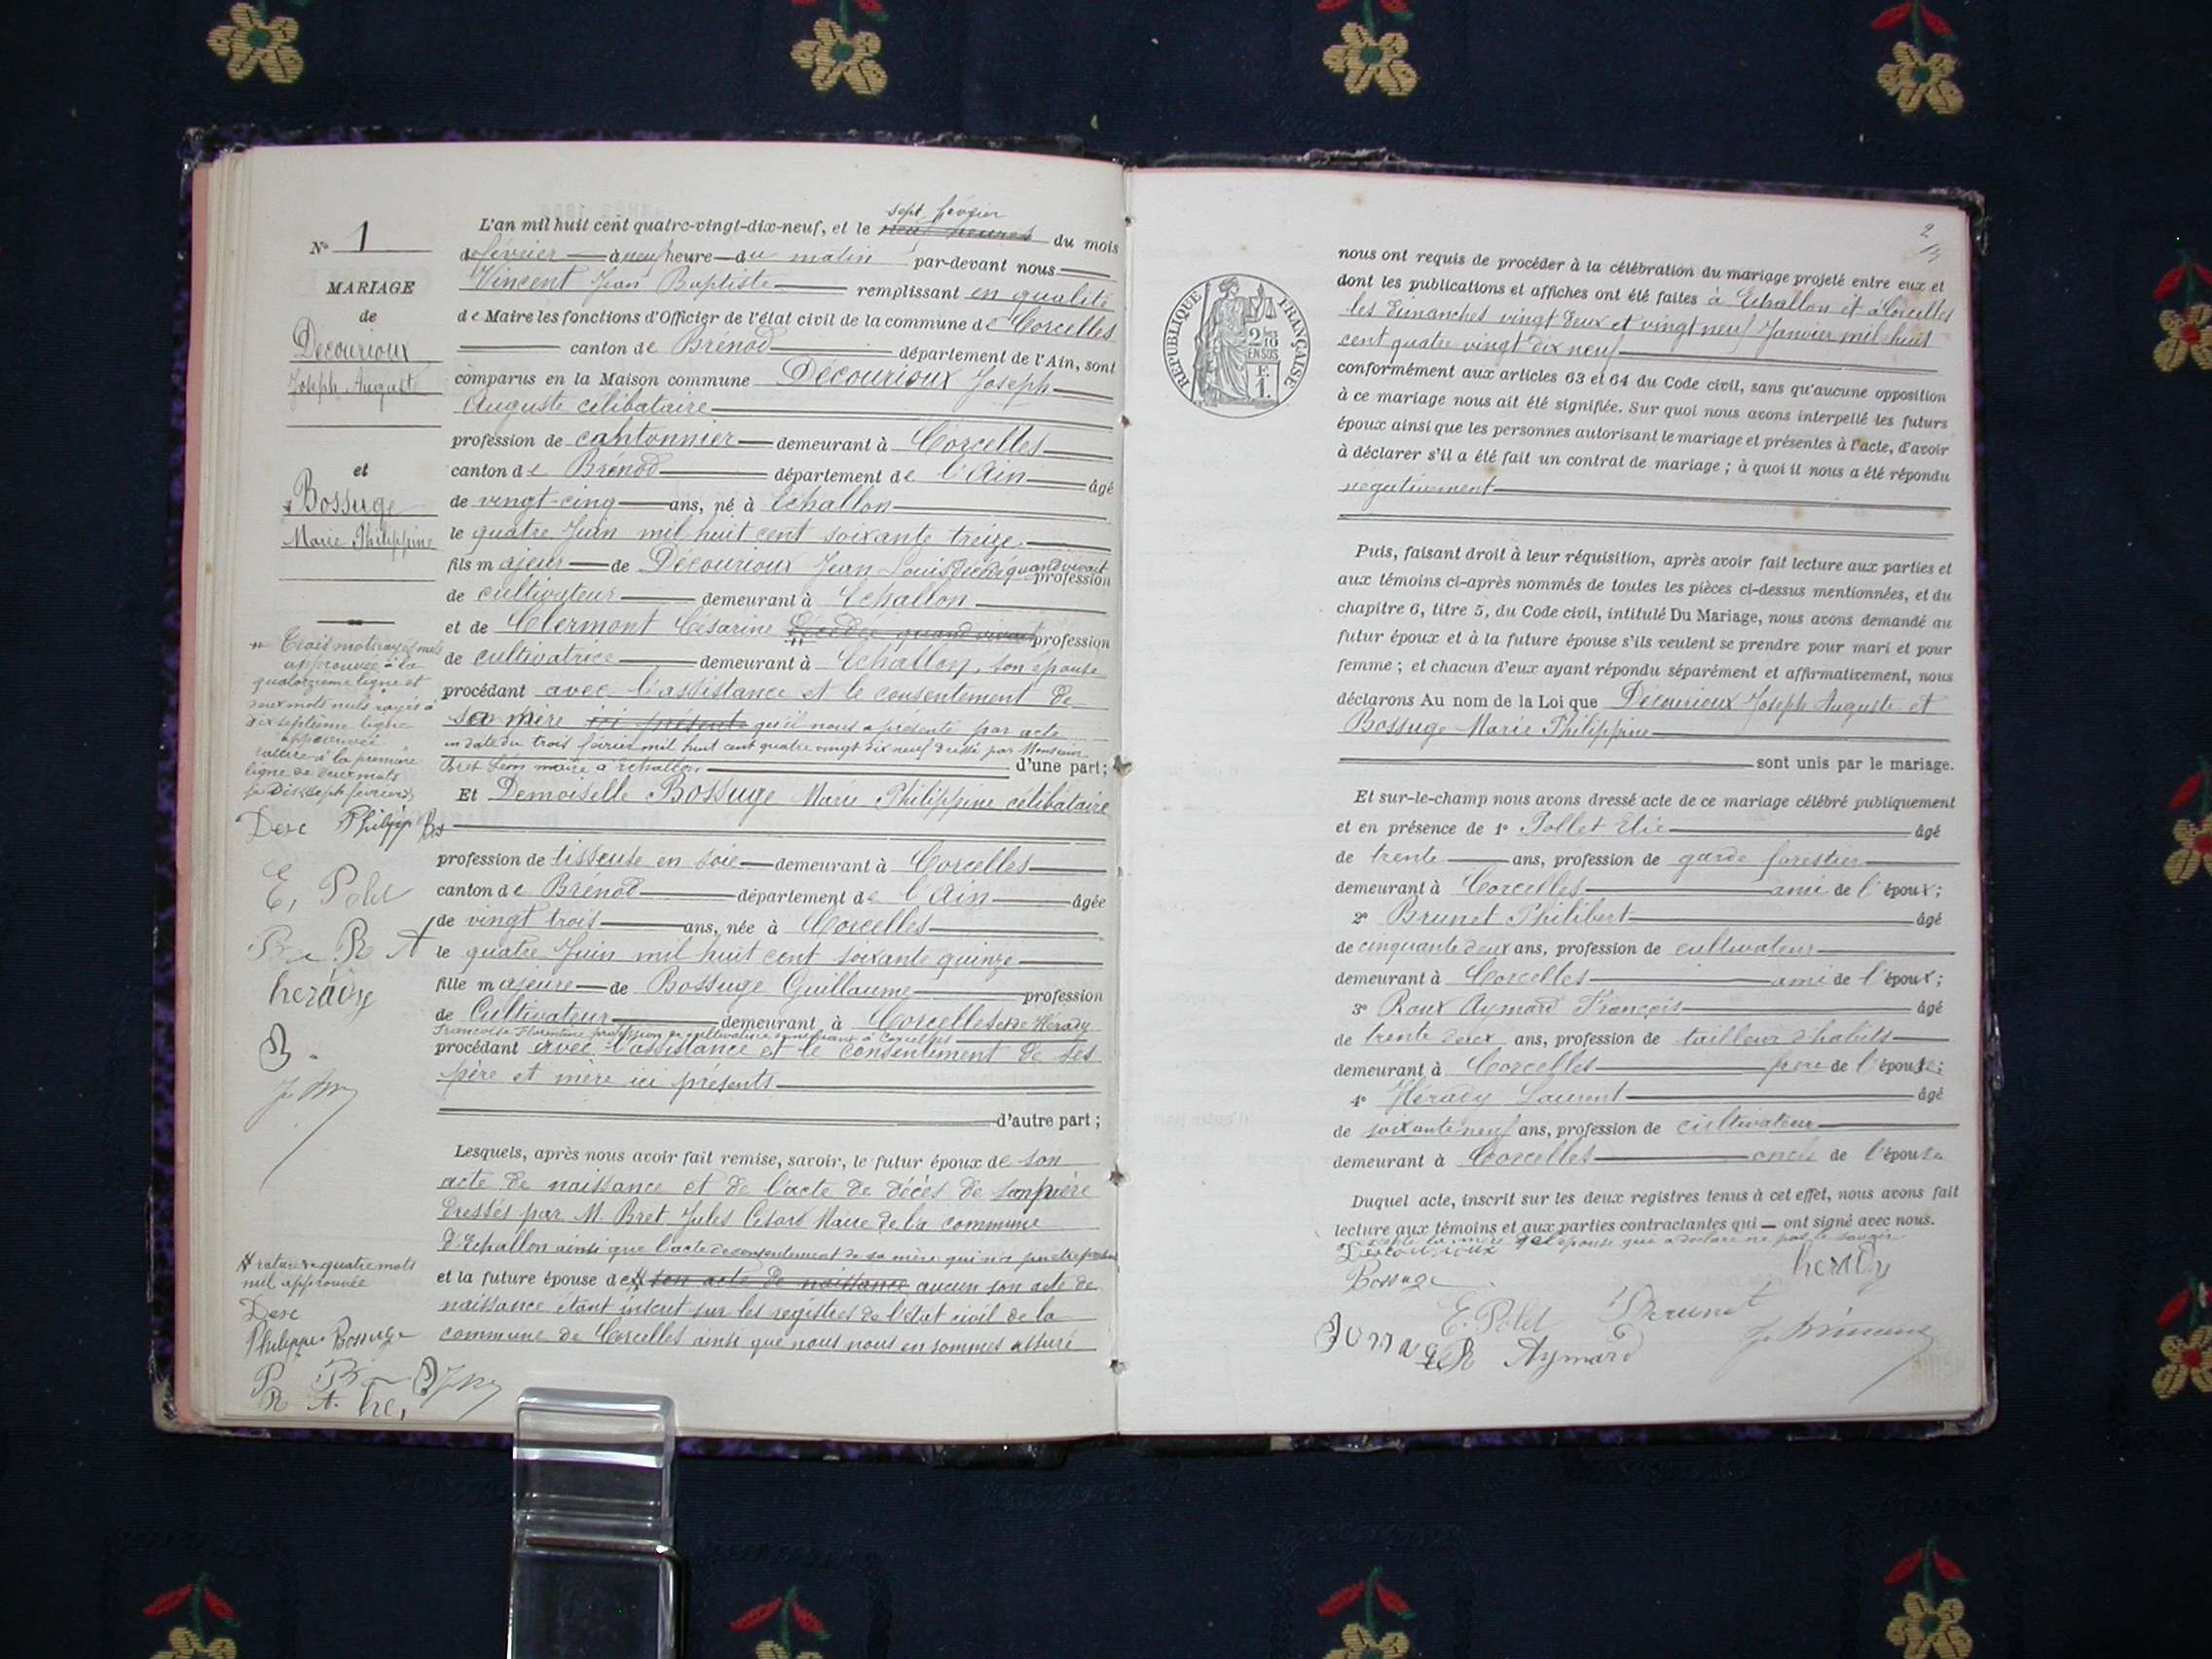 N° 1
MARIAGE
de
Décourioux
Joseph Auguste
et
Bossuge
Marie Philippine
Trois mots rayés nuls
approuvée à la
quatorzième ligne et
deux mots nuls rayés à
dix septième ligne
approuvée
rature à la première
ligne de deux mots
Desc Philipp Bs
E, Polet
R A
herady
B
rature de quatre mots
nul approuvée
Desc
Philippe Bossuge
P B
R A. he,
L'an mil huit cent quatre-vingt-dix-neuf, et le neuf heures sept février du mois
de février à neuf heure du matin par-devant nous
Vincent Jean Baptiste remplissant en qualité
de Maire les fonctions d'Officier de l'état civil de la commune de Corcelles
canton de Brénod département de l'Ain, sont
comparus en la Maison commune Décourioux Joseph
Auguste célibataire
profession de cantonnier demeurant à Corcelles
canton de Brénod département de l'Ain âgé
de vingt-cinq ans, né à Echallon
le quatre Juin mil huit cent soixante treize
fils majeur de Décourioux Jean Louis décédé quand vivait profession
de cultivateur demeurant à Echallon
et de Clermont Césarine Décédée quand vivait profession
de cultivatrice demeurant à Echallon, son épouse
procédant avec l'assistance et le consentement de
sa mère ici présente qu'il nous a présenté par acte
en date du trois février mil huit cent quatre vingt dix neuf dressé par Monsieur
Bret Léon maire à Echallon d'une part;
Et Demoiselle Bossuge Marie Philippine célibataire
profession de tisseuse en soie demeurant à Corcelles
canton de Brénod département de l'Ain âgée
de vingt trois ans, née à Corcelles
le quatre Juin mil huit cent soixante quinze
fille majeure de Bossuge Guillaume profession
de Cultivateur demeurant à Corcelles et de Hérady
Françoise Florentine profession de cultivatrice demeurant à Corcelles
procédant avec l'assistance et le consentement de ses
père et mère ici présents
d'autre part;
Lesquels, après nous avoir fait remise, savoir, le futur époux de son
acte de naissance et de l'acte de décès de son père
dressés par M. Bret Jules César Maire de la commune
d'Echallon ainsi que l'acte de consentement de sa mère qui n'a pu être présent
et la future épouse de son acte de naissance aucun son acte de
naissance étant inscrit sur les registres de l'état civil de la
commune de Corcelles ainsi que nous nous en sommes assuré
2
RÉPUBLIQUE FRANÇAISE
2/10
EN SUS
F.
1.
nous ont requis de procéder à la célébration du mariage projeté entre eux et
dont les publications et affiches ont été faites à Echallon et à Corcelles
les Dimanches vingt deux et vingt neuf Janvier mil huit
cent quatre vingt dix neuf
conformément aux articles 63 et 64 du Code civil, sans qu'aucune opposition
à ce mariage nous ait été signifiée. Sur quoi nous avons interpellé les futurs
époux ainsi que les personnes autorisant le mariage et présentes à l'acte, d'avoir
à déclarer s'il a été fait un contrat de mariage; à quoi il nous a été répondu
négativement
Puis, faisant droit à leur réquisition, après avoir fait lecture aux parties et
aux témoins ci-après nommés de toutes les pièces ci-dessus mentionnées, et du
chapitre 6, titre 5, du Code civil, intitulé Du Mariage, nous avons demandé au
futur époux et à la future épouse s'ils veulent se prendre pour mari et pour
femme; et chacun d'eux ayant répondu séparément et affirmativement, nous
déclarons Au nom de la Loi que Décourioux Joseph Auguste et
Bossuge Marie Philippine
sont unis par le mariage.
Et sur-le-champ nous avons dressé acte de ce mariage célébré publiquement
et en présence de 1° Pollet Elie âgé
de trente ans, profession de garde forestier
demeurant à Corcelles ami de l'époux;
2° Brunet Philibert âgé
de cinquante deux ans, profession de cultivateur
demeurant à Corcelles ami de l'époux;
3° Roux Aymard François âgé
de trente deux ans, profession de tailleur d'habits
demeurant à Corcelles de l'épouse;
4° Hérady Laurent âgé
de soixante neuf ans, profession de cultivateur
demeurant à Corcelles oncle de l'épouse
Duquel acte, inscrit sur les deux registres tenus à cet effet, nous avons fait
lecture aux témoins et aux parties contractantes qui — ont signé avec nous.
excepté la mère de l'épouse qui a déclaré ne pas le savoir.
Decourioux herady
Bossuge
E. Polet Brunet
Bossuge R Aymard J. Vincent